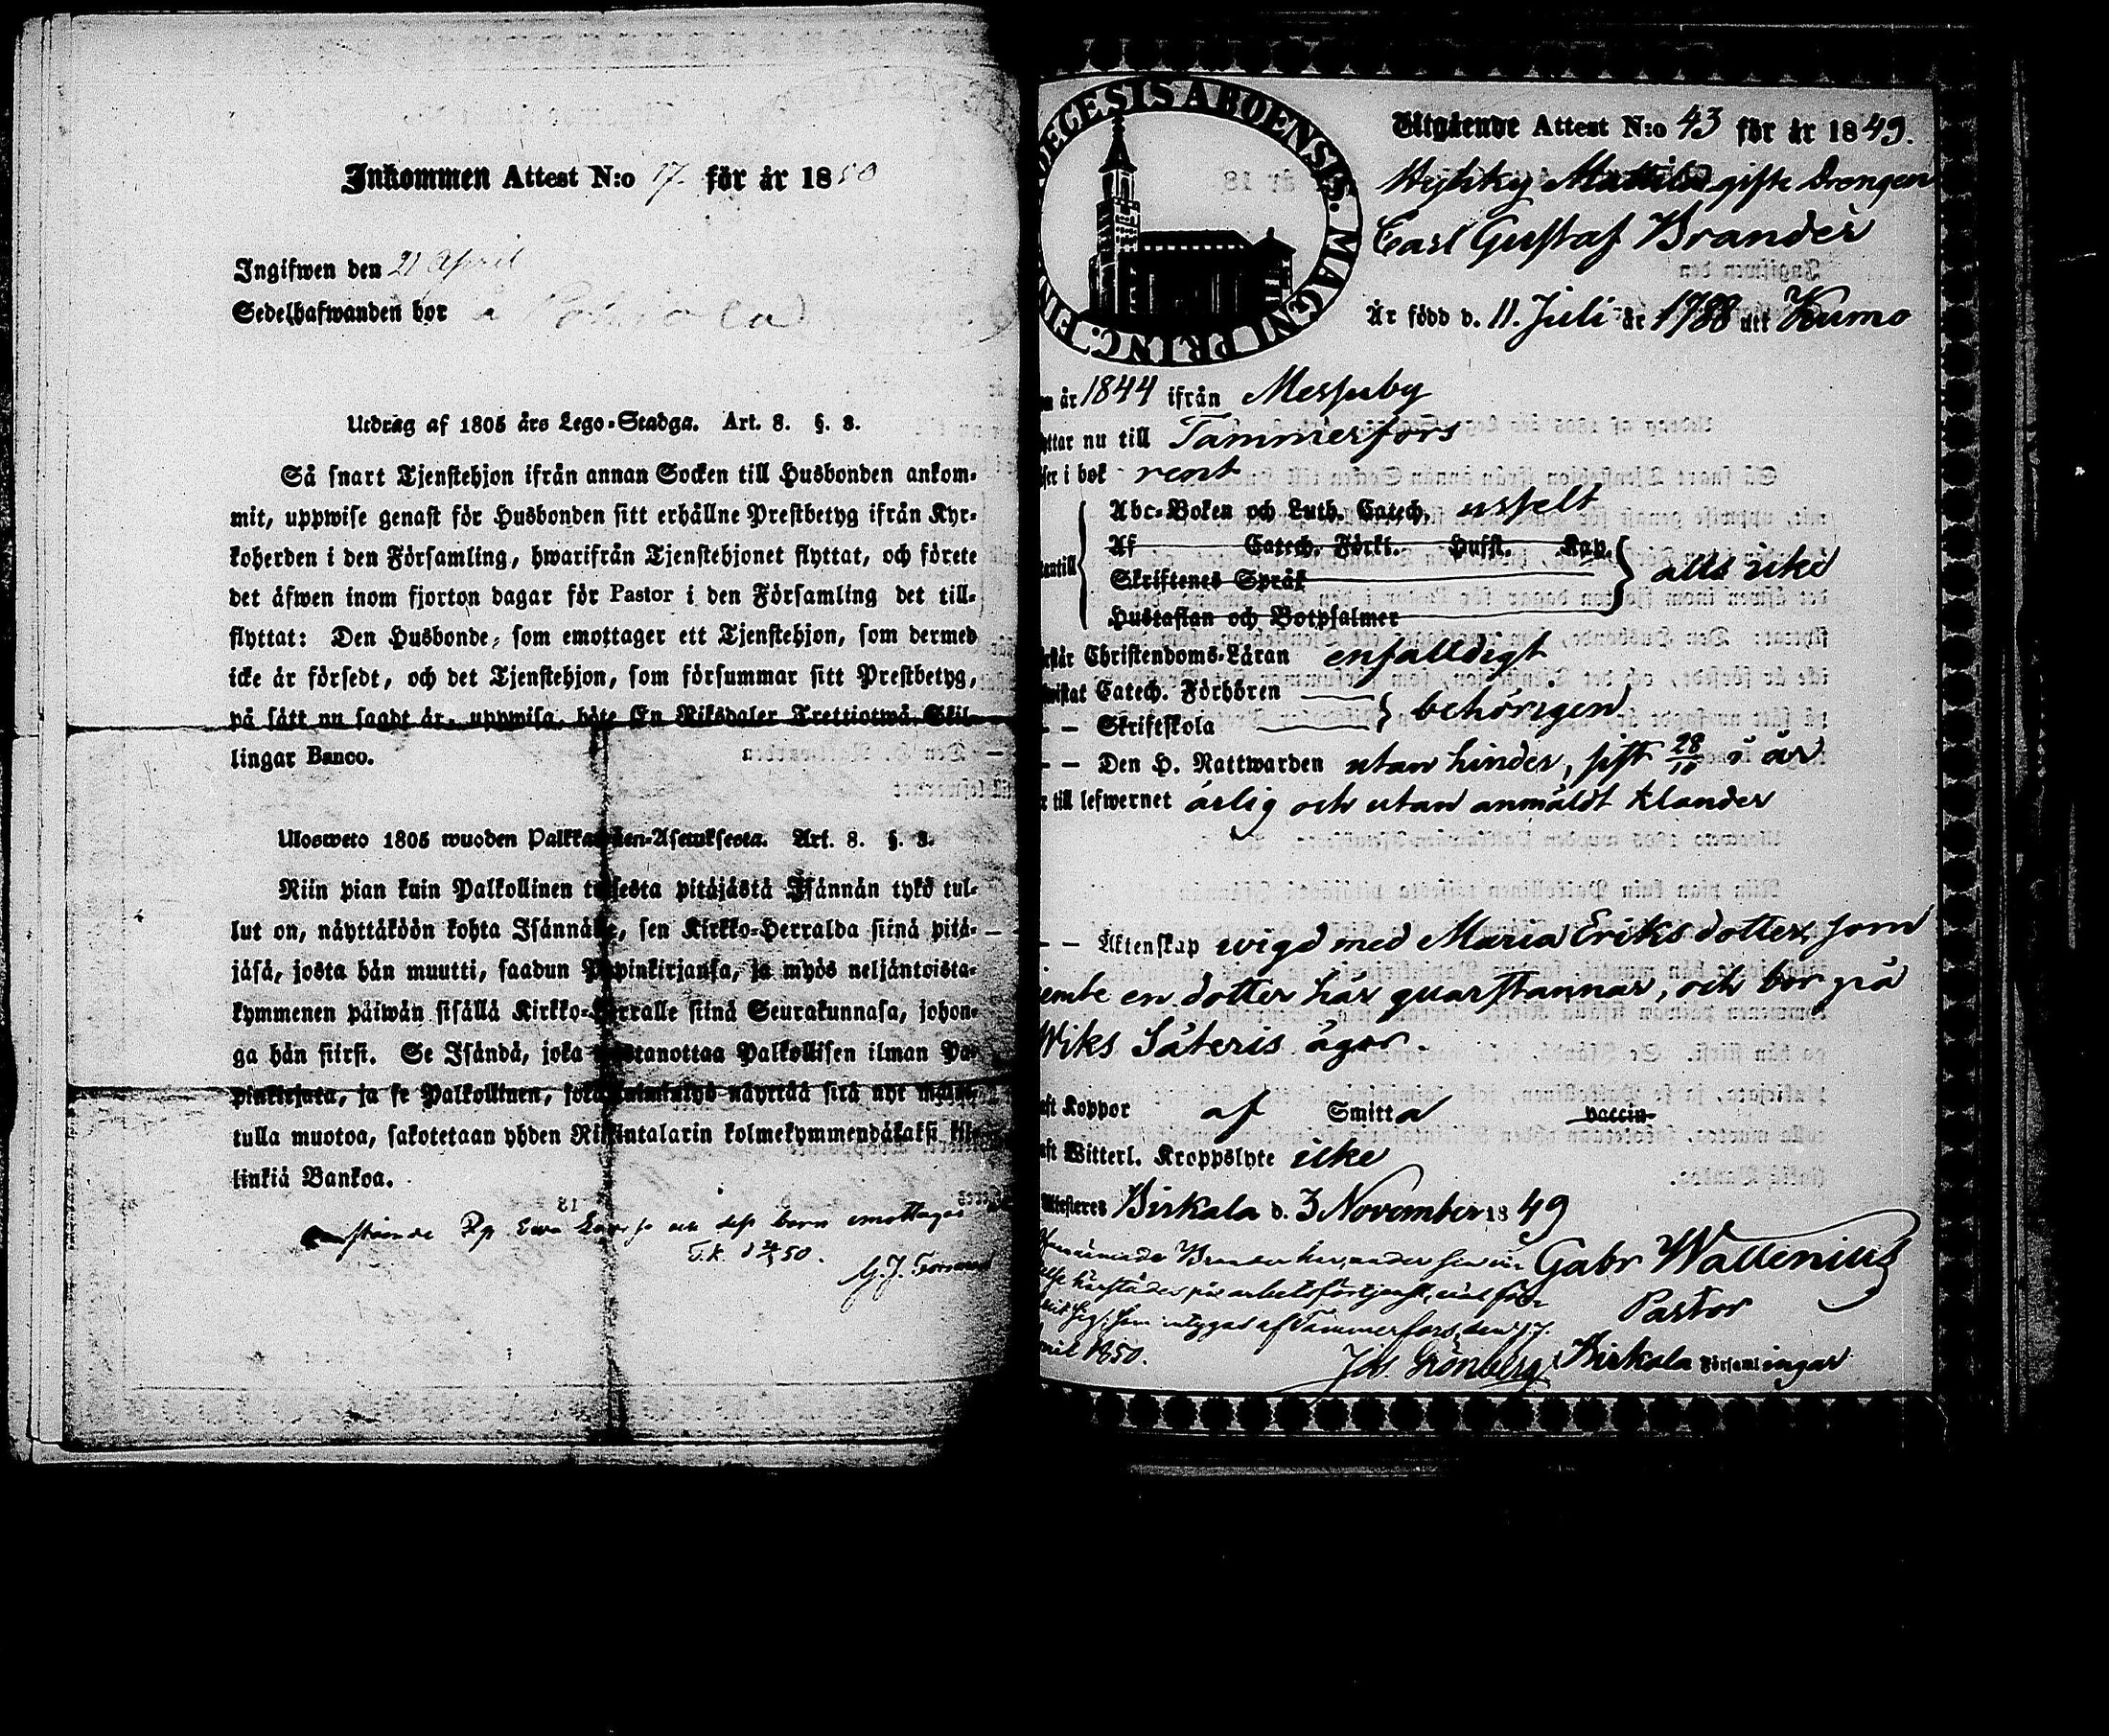 Inkommen Attest N:o 17. för år 1850
Ingifwen den 21 April
Sedelhafwanden bor
Utdrag af 1805 års Lego-Stadga. Art. 8. §. 3.
Så snart Tjenstehjon ifrån annan Socken till Husbonden ankom-
mit, uppwise genast för Husbonden sitt erhållne Prestbetyg ifrån Kyr-
koherden i den Församling, hwarifrån Tjenstehjonet flyttat, och förete
det äfwen inom fjorton dagar för Pastor i den Församling det till-
flyttat: Den Husbonde, som emottager ett Tjenstehjon, som dermed
icke är försedt, och det Tjenstehjon, som försummar sitt Prestbetyg,
på sätt nu sagdt är, uppwisa, böte En Riksdaler Trettiotwå Skil-
lingar Banco.
Ulosweto 1805 wuoden Palkkawäen-Asetuksesta. Art. 8. §. 3.
Niin pian kuin Palkollinen toisesta pitäjästä Isännän tykö tul-
lut on, näyttäköön kohta Isännälle, sen Kirkko-Herralda siinä pitä-
jäsä, josta hän muutti, saadun Papinkirjansa, ja myös neljäntoista-
kymmenen päiwän sisällä Kirkko-Herralle siinä Seurakunnasa, johon-
ga hän siirsi. Se Isändä, joka wastanottaa Palkollisen ilman Pa-
pinkirjata, ja se Palkollinen, joka laiminlyö näyttää sitä nyt mainit-
tulla muotoa, sakotetaan yhden Riksintalarin kolmekymmendäkaksi kil-
linkiä Bankoa.
barn emottages
50.
G. J.
DIOECESIS ABOENSIS. MAGNI PRINC. FIN
Utgående Attest N:o 43 för år 1849.
gifte Drengen
Carl Gustaf Brander
Är född d. 11. Juli år 1788 uti Kumo
m år 1844 ifrån Messuby
yttar nu till Tammerfors
ser i bok rent
Abc-Boken och Luth. Catech. usselt
Af Catech. Förkl. Husst. Kap.
antill Skriftenes Språk alls icke
Hustaflan och Botpsalmer
rstår Christendoms-Läran enfalldigt
wistat Catech. Förhören
behörigen
– – Skriftskola
– – Den H. Nattwarden utan hinder, sist 28/10 i år
r till lefwernet ärlig och utan anmäldt klander
– – Äktenskap wigd med Maria Eriksdotter, som
jemte en dotter här quarstannar, och bor på
Wiks Säteris ägor.
aft Koppor af Smitta vaccin.
aft Witterl. Kroppslyte icke
Attesteres Birkala d. 3 November 1849
Brander har under sin
Gabr Wallenius
härstädes på arbetsförtjenst, väl för
Pastor
sig, som intygas af Tammerfors, den 17.
April 1850.
Joh. Grönberg
Birkala Församlingar